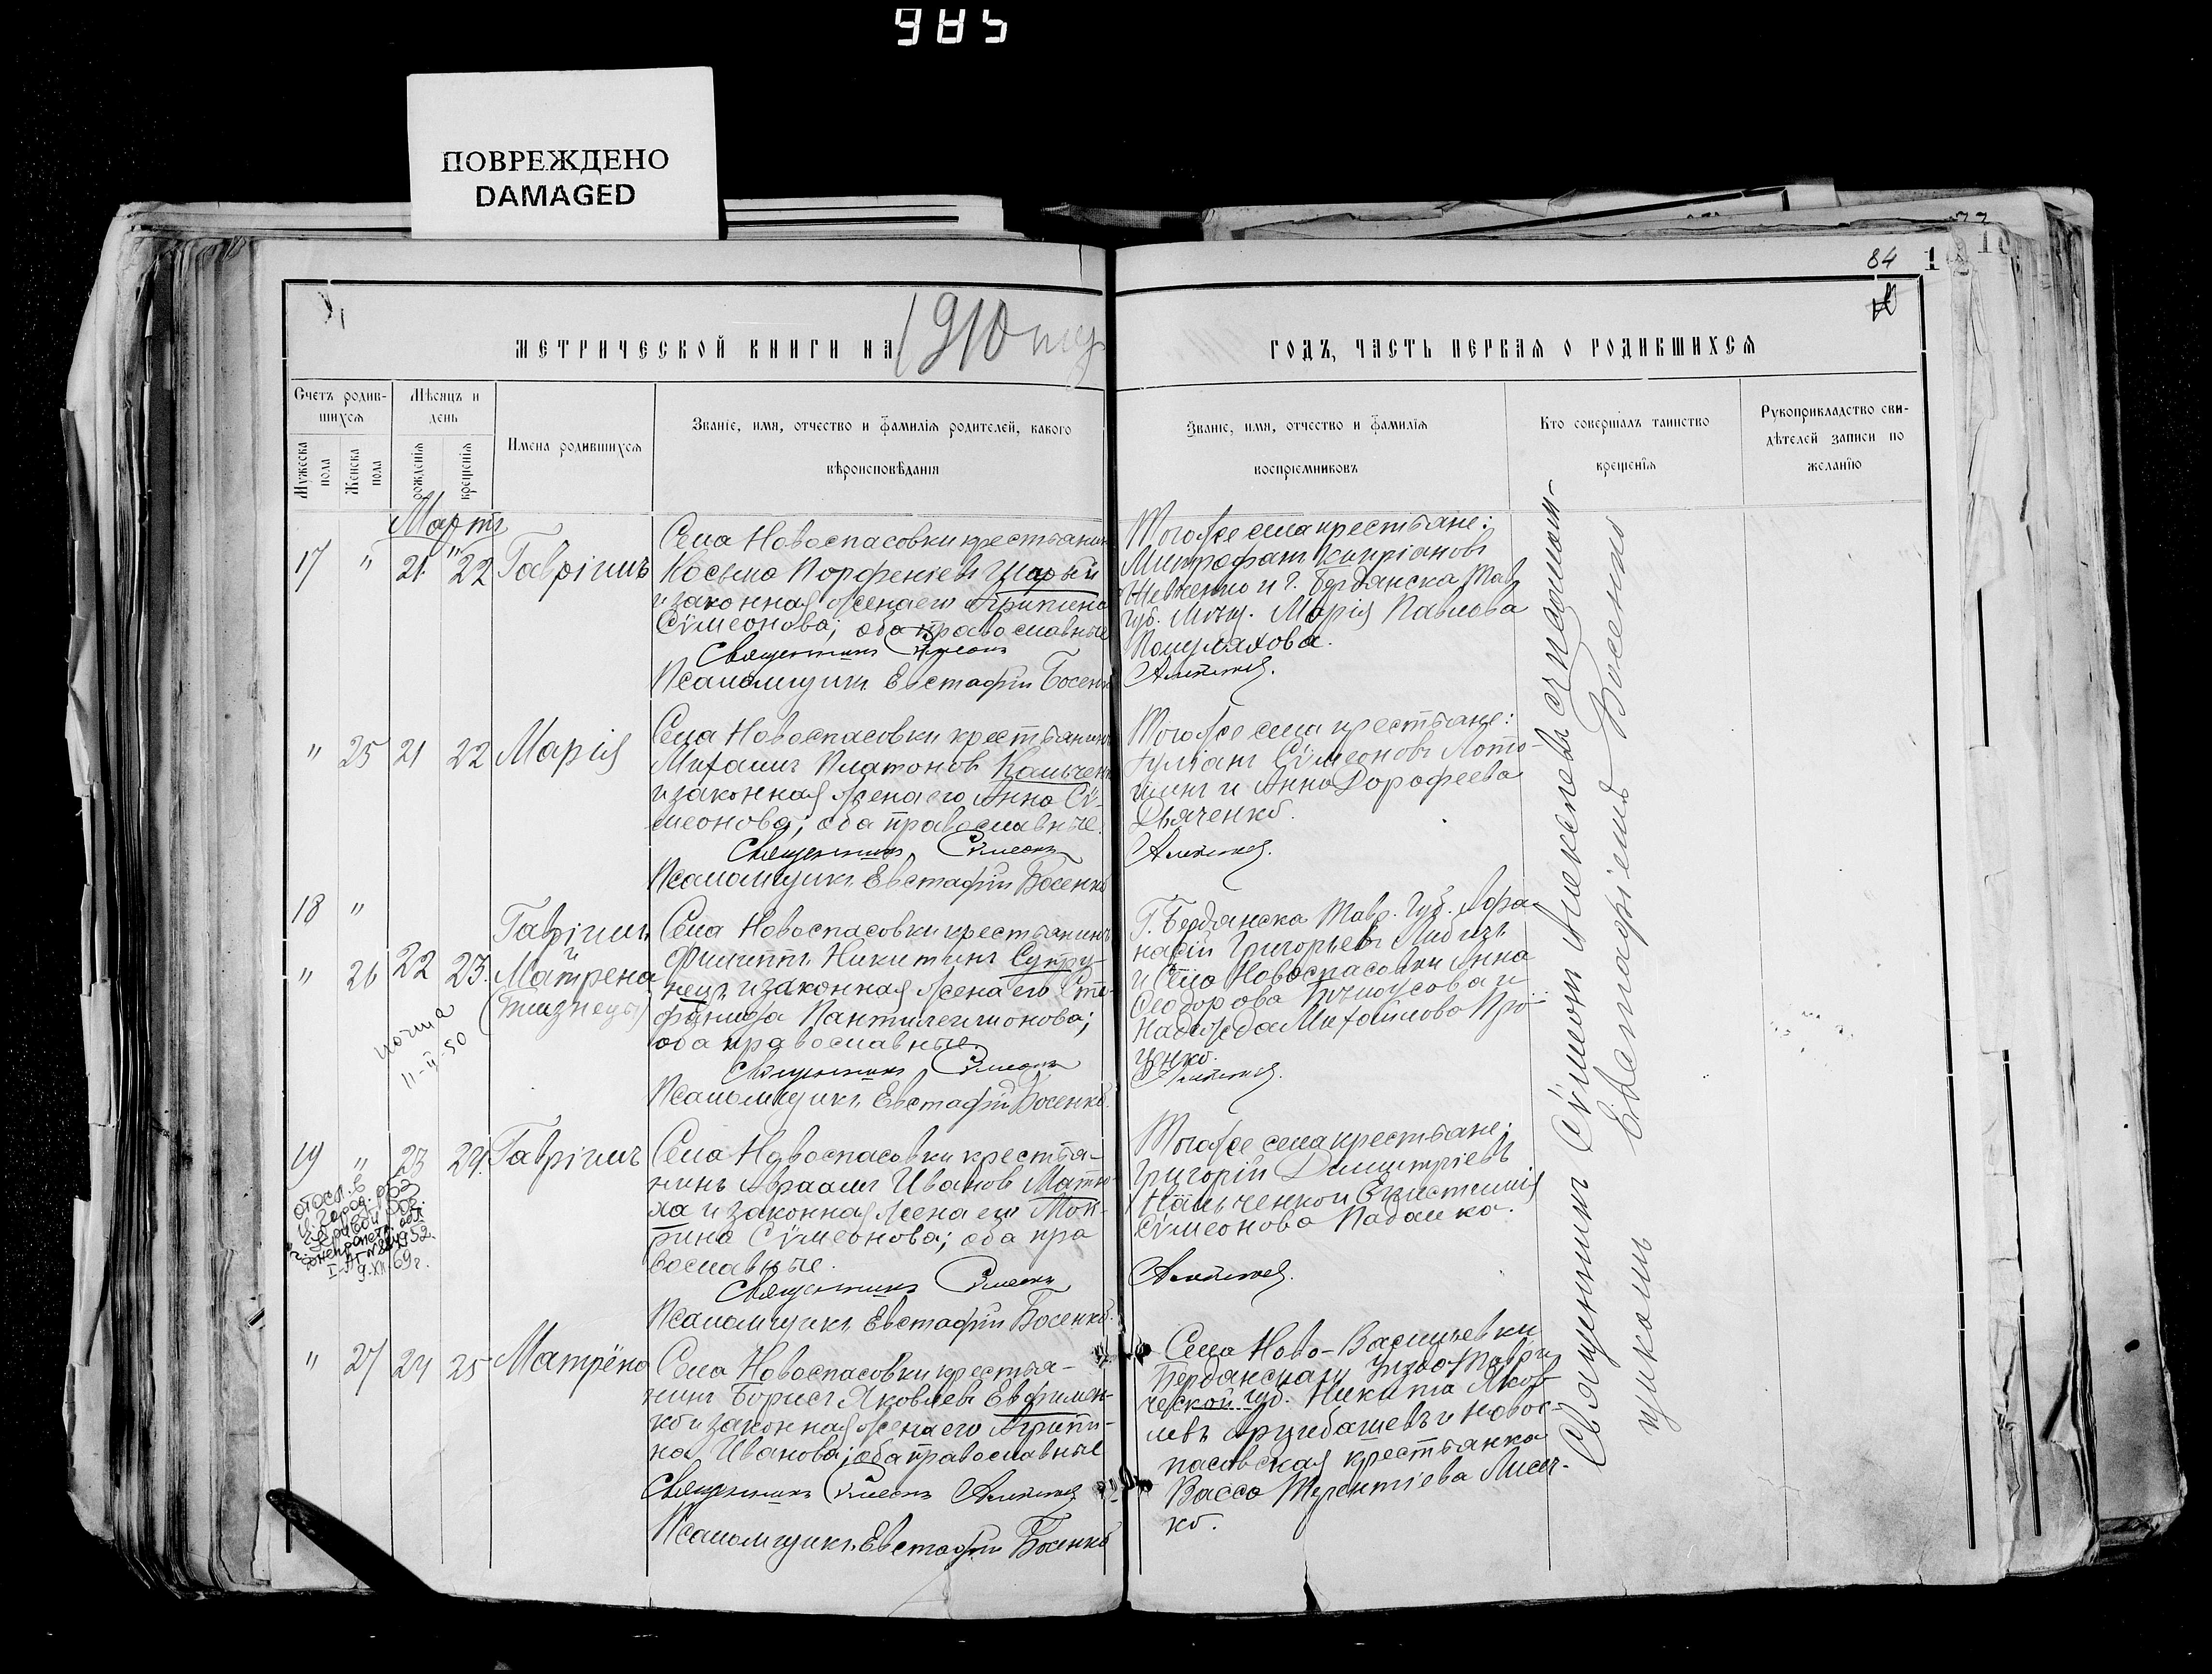 985
ПОВРЕЖДЕНО
DAMAGED
84
МЕТРИЧЕСКОЙ КНИГИ НА 1910 год
ГОДЪ, ЧАСТЬ ПЕРВАЯ О РОДИВШИХСЯ
Счетъ родив-
шихся
Мужеска пола
Женска пола
Мѣсяцъ и
день
рожденія
крещенія
Имена родившихся
Званіе, имя, отчество и фамилія родителей, какого
вѣроисповѣданія
Званіе, имя, отчество и фамилія
воспріемниковъ
Кто совершалъ таинство
крещенія
Рукоприкладство сви-
дѣтелей записи по
желанію
Мартъ
17 " 21 22 Гавріилъ
Села Новоспасовки крестьянинъ
Косьма Парфеніевъ Шарый
и законная жена его Агрипина
Сѵмеонова; оба православные
Священникъ Сѵмеонъ
Псаломщикъ Евстафій Босенко
Того же села крестьяне:
Митрофанъ Кипріановъ
и г. Бердянска Тав.
губ. мѣщ. Марія Павлова
" 25 21 22 Марія
Села Новоспасовки крестьянинъ
Михаилъ Платоновъ Кальченко
и законная жена его Анна Сѵ-
меонова; оба православные.
Священникъ Сѵмеонъ
Псаломщикъ Евстафій Босенко
Того же села крестьяне:
Іуліанъ Сѵмеоновъ
и Анна Дорофеева
Дьяченко.
18 "
" 26 22 23
Гавріилъ
и
Матрена
(близнецы)
11-II-50
Села Новоспасовки крестьянинъ
Филиппъ Никитинъ Супру-
нецъ и законная жена его Сте-
фанида Пантилеимонова;
оба православные.
Священникъ Сѵмеонъ
Псаломщикъ Евстафій Босенко.
Г. Бердянска Тавр. Губ. Афа-
насій Григорьевъ
и Села Новоспасовки Анна
Феодорова Бѣлоусова и
Надежда Михайлова Про-
ценко.
19 " 23 24. Гавріилъ
9-XII-69г.
Села Новоспасовки крестья-
нинъ Авраамъ Ивановъ Матю-
ха и законная жена его Мат-
рина Сѵмеонова; оба пра
вославные.
Священникъ Сѵмеонъ
Псаломщикъ Евстафій Босенко.
Того же села крестьяне:
Григорій Димитріевъ
Сѵмеонова Падалка.
" 27 24 25 Матрёна
Села Новоспасовки крестья-
нинъ Борисъ Яковлевъ Евфимен-
ко и законная жена его Агрипи-
на Иванова; оба православные
Священникъ Сѵмеонъ
Псаломщикъ Евстафій Босенко
Села Ново-Васильевки
Бердянскаго уѣзда Таври-
ческой губ. Никита Яков-
левъ и Новос-
пасовская крестьянка
Васса Терентіева Лисич-
ко.
Священникъ Сѵмеонъ Алексѣевъ съ псалом-
щикомъ Евстафіемъ Босенко